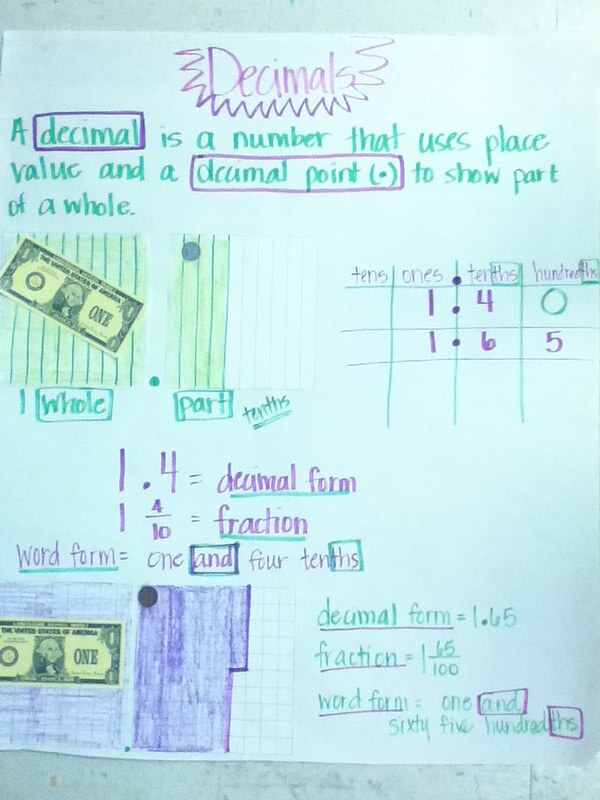 Decimals
A decimal is a number that uses place
value and a decimal point (.) to show part
of a whole.
THE UNITED STATES OF AMERICA
ONE
tens ones . tenths hundredths
1 . 4 0
1 . 6 5
1 whole . part tenths
1.4 = decimal form
1 4/10 = fraction
word form = one and four tenths
THE UNITED STATES OF AMERICA
ONE
decimal form = 1.65
fraction = 1 65/100
word form = one and
sixty five hundredths